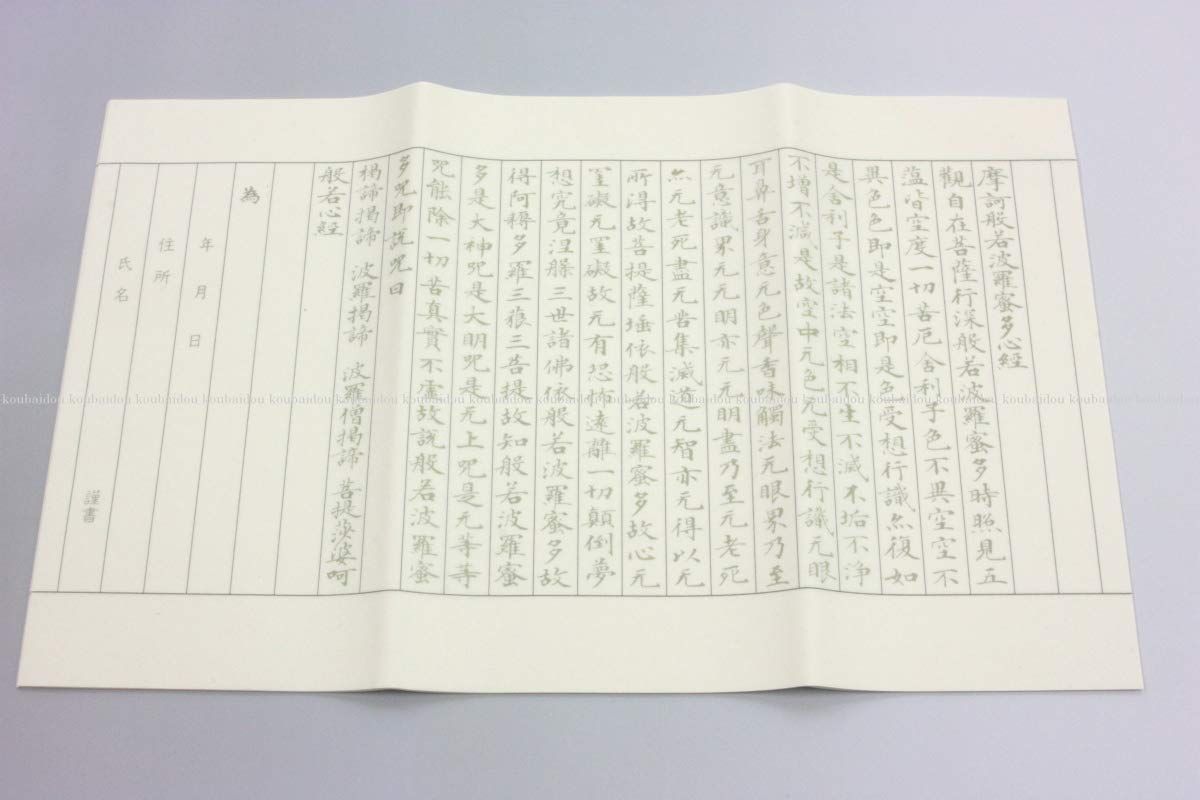 摩訶般若波羅蜜多心經
觀自在菩薩行深般若波羅蜜多時照見五
蕰皆空度一切苦厄舍利子色不異空空不
異色色即是空空即是色受想行識亦復如
是舍利子是諸法空相不生不滅不垢不淨
不增不減是故空中元色元受想行識元眼
耳鼻舌身意元色聲香味觸法元眼界乃至
元意識界元元明亦元元明盡乃至元老死
亦元老死盡元苦集滅道元智亦元得以元
所得故菩提薩埵依般若波羅蜜多故心元
罣礙元罣礙故元有恐怖遠離一切顛倒夢
想究竟涅槃三世諸佛依般若波羅蜜多故
得阿耨多羅三藐三菩提故知般若波羅蜜
多是大神咒是大明咒是元上咒是元等等
咒能除一切苦真實不虛故說般若波羅蜜
多咒即說咒曰
揭諦揭諦 波羅揭諦 波羅僧揭諦 菩提莎婆呵
般若心經
為
年 月 日
住所
氏名
謹書
koubaidou koubaidou koubaidou koubaidou koubaidou koubaidou koubaidou koubaidou koubaidou koubaidou koubaidou koubaidou koubaidou koubaidou koubaidou koubaidou koubaidou koubaidou